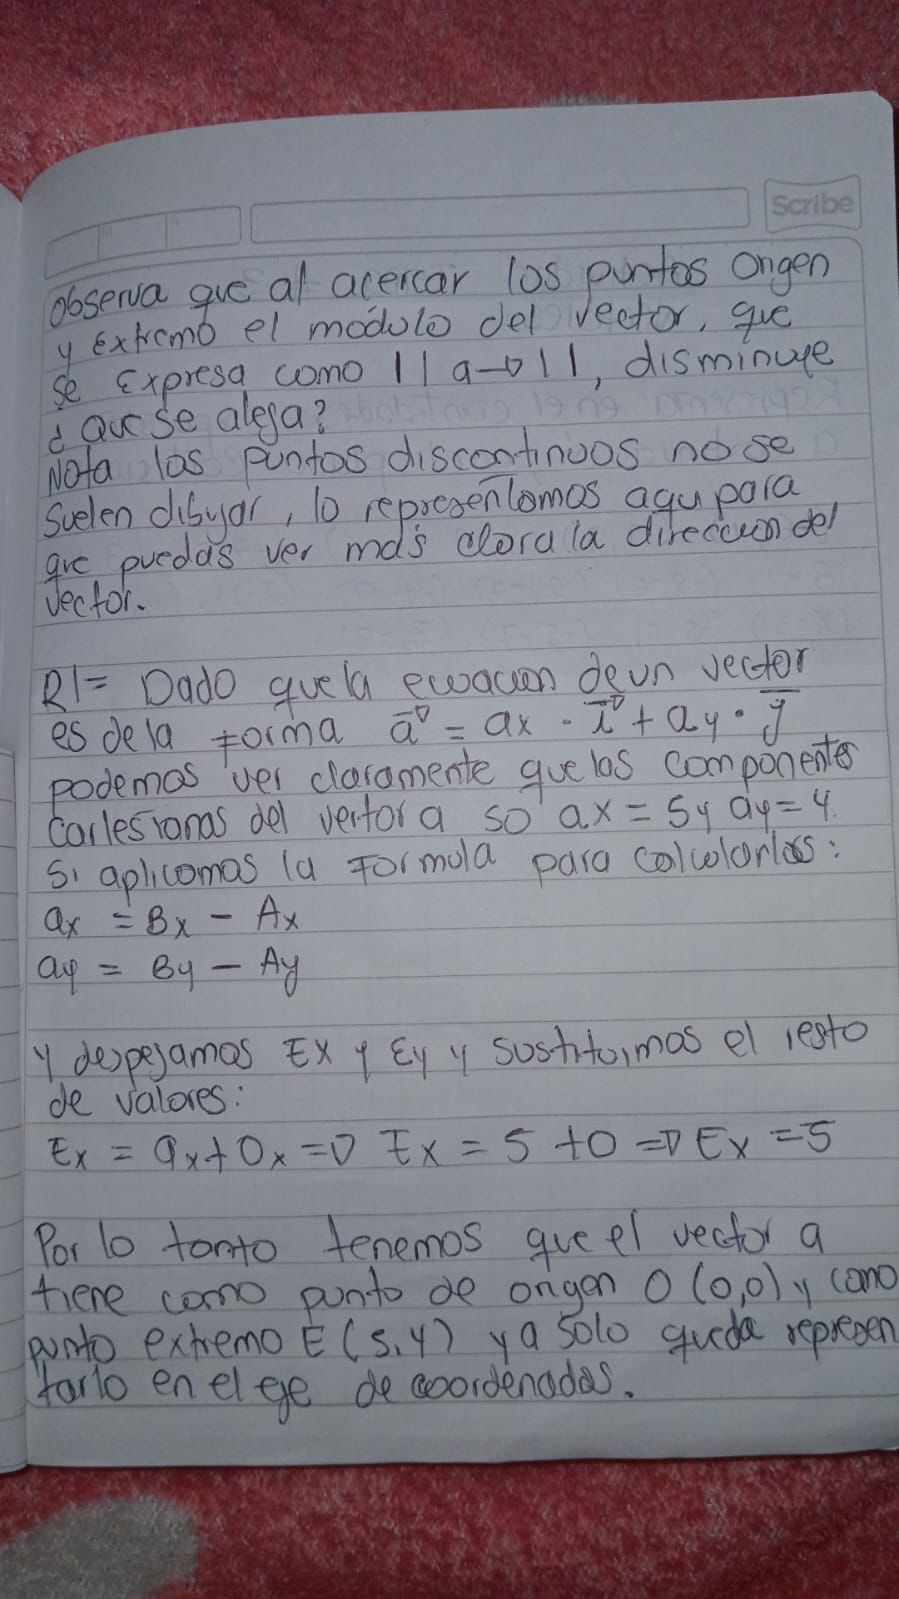 Scribe
observa que al acercar los puntos origen
y extremo el módulo del vector, que
se Expresa como ||a→||, disminuye
¿ Que se aleja?
Nota los puntos discontinuos no se
suelen dibujar, lo representamos aqu para
que puedas ver más clara la direccion del
vector.
R1= Dado que la ecuacion de un vector
es de la forma a→ = ax · i→ + ay · j
podemos ver claramente que las componentes
Cartesianas del vector a so ax = 5 y ay = 4.
Si aplicamos la Formula para calcularlas:
ax = Bx - Ax
ay = By - Ay
Y despejamos Ex y Ey y sustituimos el resto
de valores:
Ex = ax + Ox => Ex = 5 + 0 => Ex = 5
Por lo tanto tenemos que el vector a
tiene como punto de origen O (0,0) y como
punto extremo E (5,4) ya solo queda represen
tarlo en el eje de coordenadas.